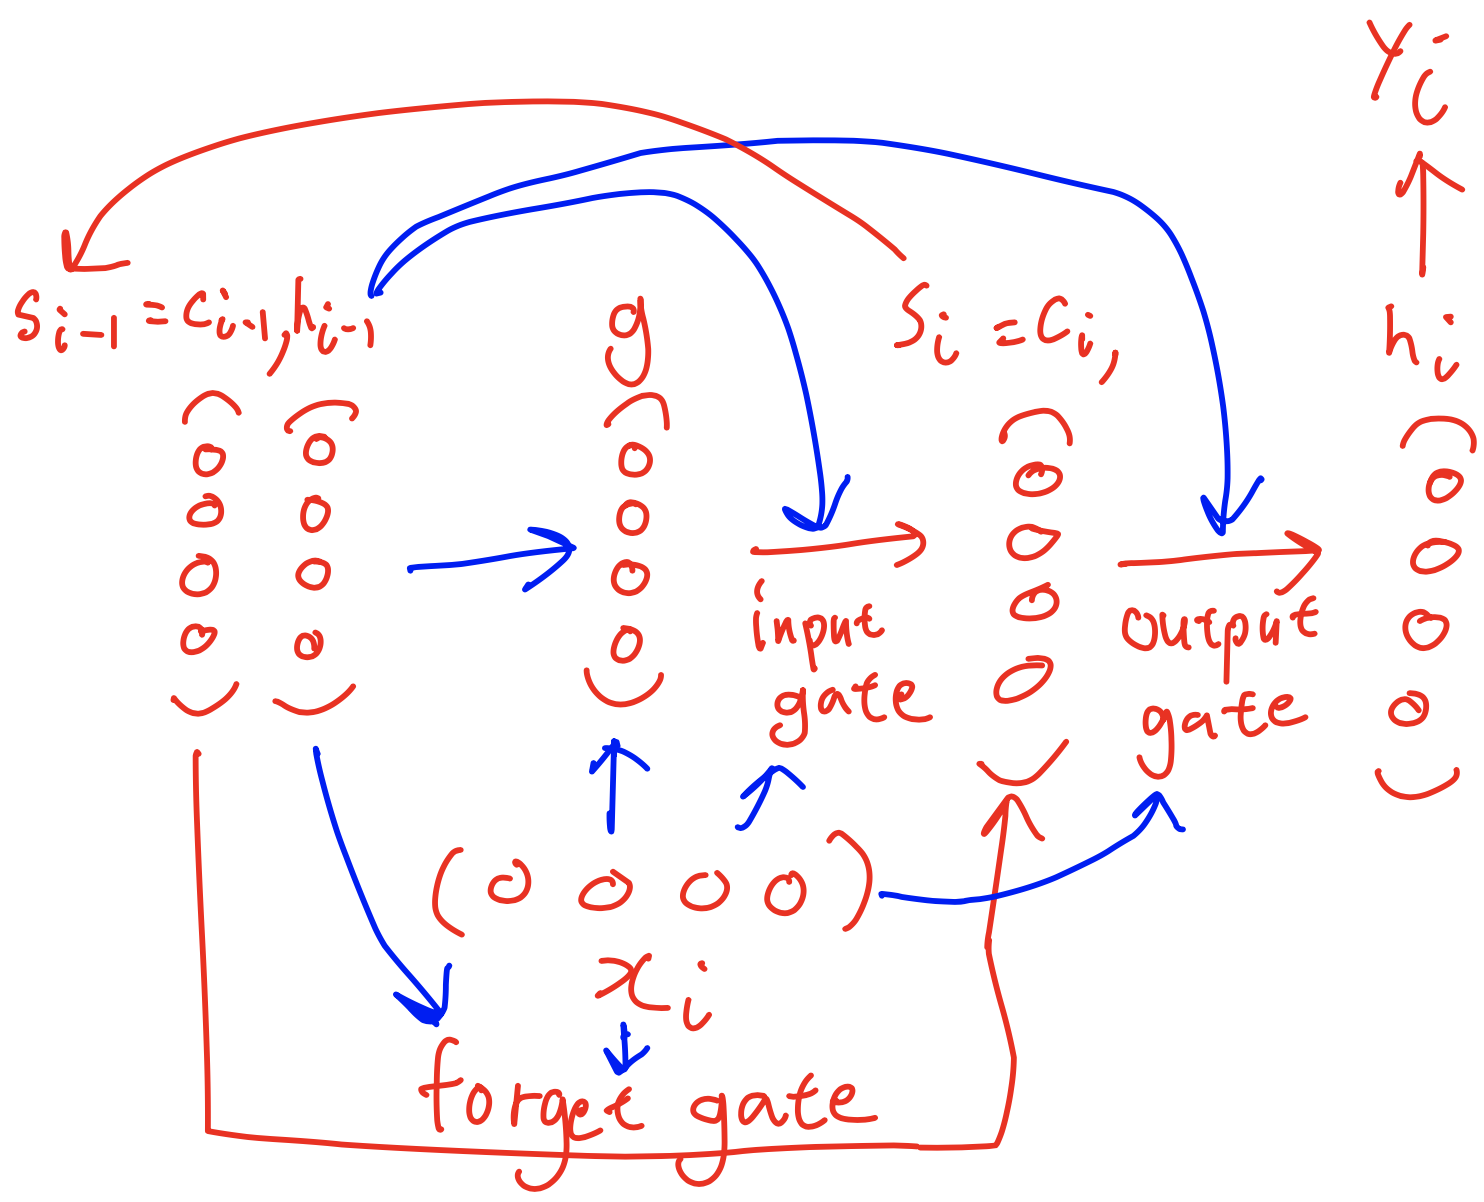 Yi
Si-1 = Ci-1, hi-1
g
Si = Ci,
hi
input
gate
output
gate
xi
forget gate